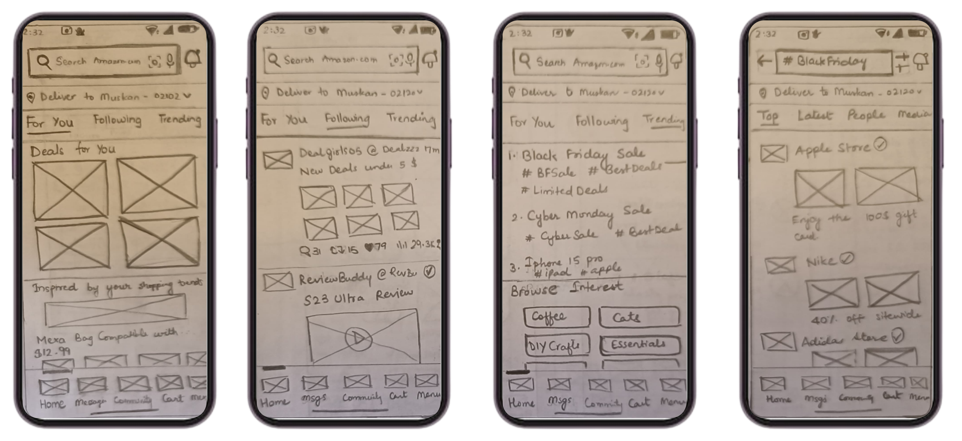 2:32
Search Amazon.com
Deliver to Muskan - 02102
For You Following Trending
Deals for you
Inspired by your shopping
Mexa Bag Compatible with...
$12.99
Home Message Community Cart Menu
2:32
Search Amazon.com
Deliver to Muskan - 02120
For You Following Trending
Dealgirls05 @ 7m
New Deals under 5 $
31 15 79 29.3k
ReviewBuddy
S23 Ultra Review
Home Msgs Community Cart Menu
2:32
Search Amazon.com
Deliver to Muskan - 02120
For You Following Trending
1. Black Friday Sale
# BFSale # Best Deals
# Limited Deals
2. Cyber Monday Sale
# Cyber Sale # Best Deal
3. Iphone 15 pro
# ipad # apple
Browse Interest
Coffee Cats
DIY Crafts Essentials
Home Msgs Community Cart Menu
2:32
# BlackFriday
Deliver to Muskan - 02120
Top Latest People Media
Apple Store
Enjoy the 100$ gift
card
Nike
40% off sitewide
Adidas Store
Home Msgs Community Cart Menu